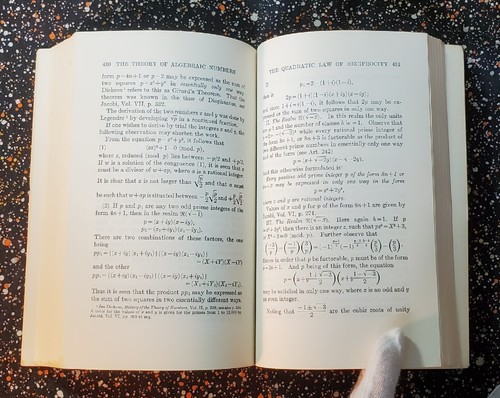 430 THE THEORY OF ALGEBRAIC NUMBERS
form p=4n+1 or p=2 may be expressed as the sum of
two squares p=x²+y² in essentially only one way.
Dickson¹ refers to this as Girard's Theorem. That the
theorem was known in the time of Diophantus, see
Jacobi, Vol. VII, p. 332.
The derivation of the two numbers x and y was done by
Legendre¹ by developing √p in a continued fraction.
If one wishes to derive by trial the integers x and y, the
following observation may shorten the work.
From the equation p=x²+y², it follows that
(1) sx²+1≡0 (mod. p),
where s, reduced (mod. p) lies between −p/2 and +p/2.
If w is a solution of the congruence (1), it is seen that x
must be a divisor of w+ap, where a is a rational integer.
It is clear that x is not greater than and that a must
be such that w+ap is situated between
(2) If p and p₁ are any two odd prime integers of the
form 4n+1, then in the realm
p=(x+iy)(x−iy),
p₁=(x₁+iy₁)(x₁−iy₁).
There are two combinations of these factors, the one
being
pp₁=[(x+iy)(x₁+iy₁)][(x−iy)(x₁−iy₁)]
=(X+iY)(X−iY)
and the other
pp₁=[(x+iy)(x₁−iy₁)][(x−iy)(x₁+iy₁)]
=(X₁+iY₁)(X₁−iY₁).
Thus it is seen that the product pp₁ may be expressed as
the sum of two squares in two essentially different ways.
¹ See Dickson, History of the Theory of Numbers, Vol. II, p.
THE QUADRATIC LAW OF RECIPROCITY 431
If p₁=2=(1+i)(1−i),
then is 2p=(1+i)(1−i)(x+iy)(x−iy);
and since 1+i=i(1−i), it follows that 2p may be ex-
pressed as the sum of two squares in only one way.
II. The Realm In this realm the only units
are ±1 and the number of classes h is =1. Observe that
while every rational prime integer of
the form 8n+1, or 8n+3 is factorable as the product of
two different prime numbers in essentially only one way
and of the form (see Art. 242)
and thus otherwise formulated is:
Every positive odd prime integer p of the form 8n+1 or
8n+3 may be expressed in only one way in the form
p=x²+2y²,
where x and y are rational integers.
Values of x and y for p of the form 8n+1 are given by
Jacobi, Vol. VI, p. 271.
III. The Realm Here again h=1. If p
then there is an integer
(mod. p). Further observe that
Hence in order that p be factorable, p must be of the form
p=3n+1. And p being of this form, the equation
may be satisfied in only one way, where x is an odd and y
an even integer.
Noting that (−1±√−3)/2 are the cubic roots of unity